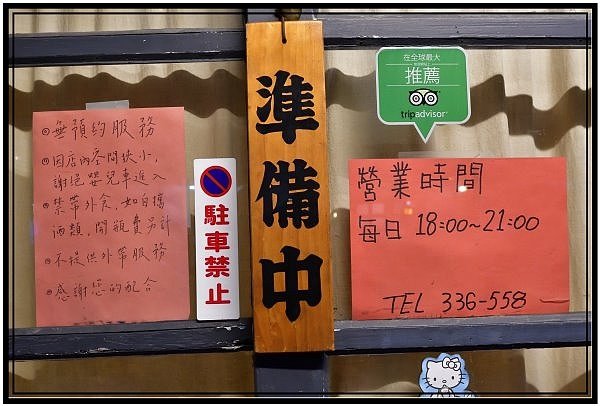 ◎無預約服務
◎因店內空間狹小,
謝絕嬰兒車進入
◎禁帶外食,如自攜
酒類,開瓶費另計
◎不提供外帶服務
◎感謝您的配合
駐車禁止
準備中
在全球最大
推薦
tripadvisor
營業時間
每日 18:00~21:00
TEL 336-558